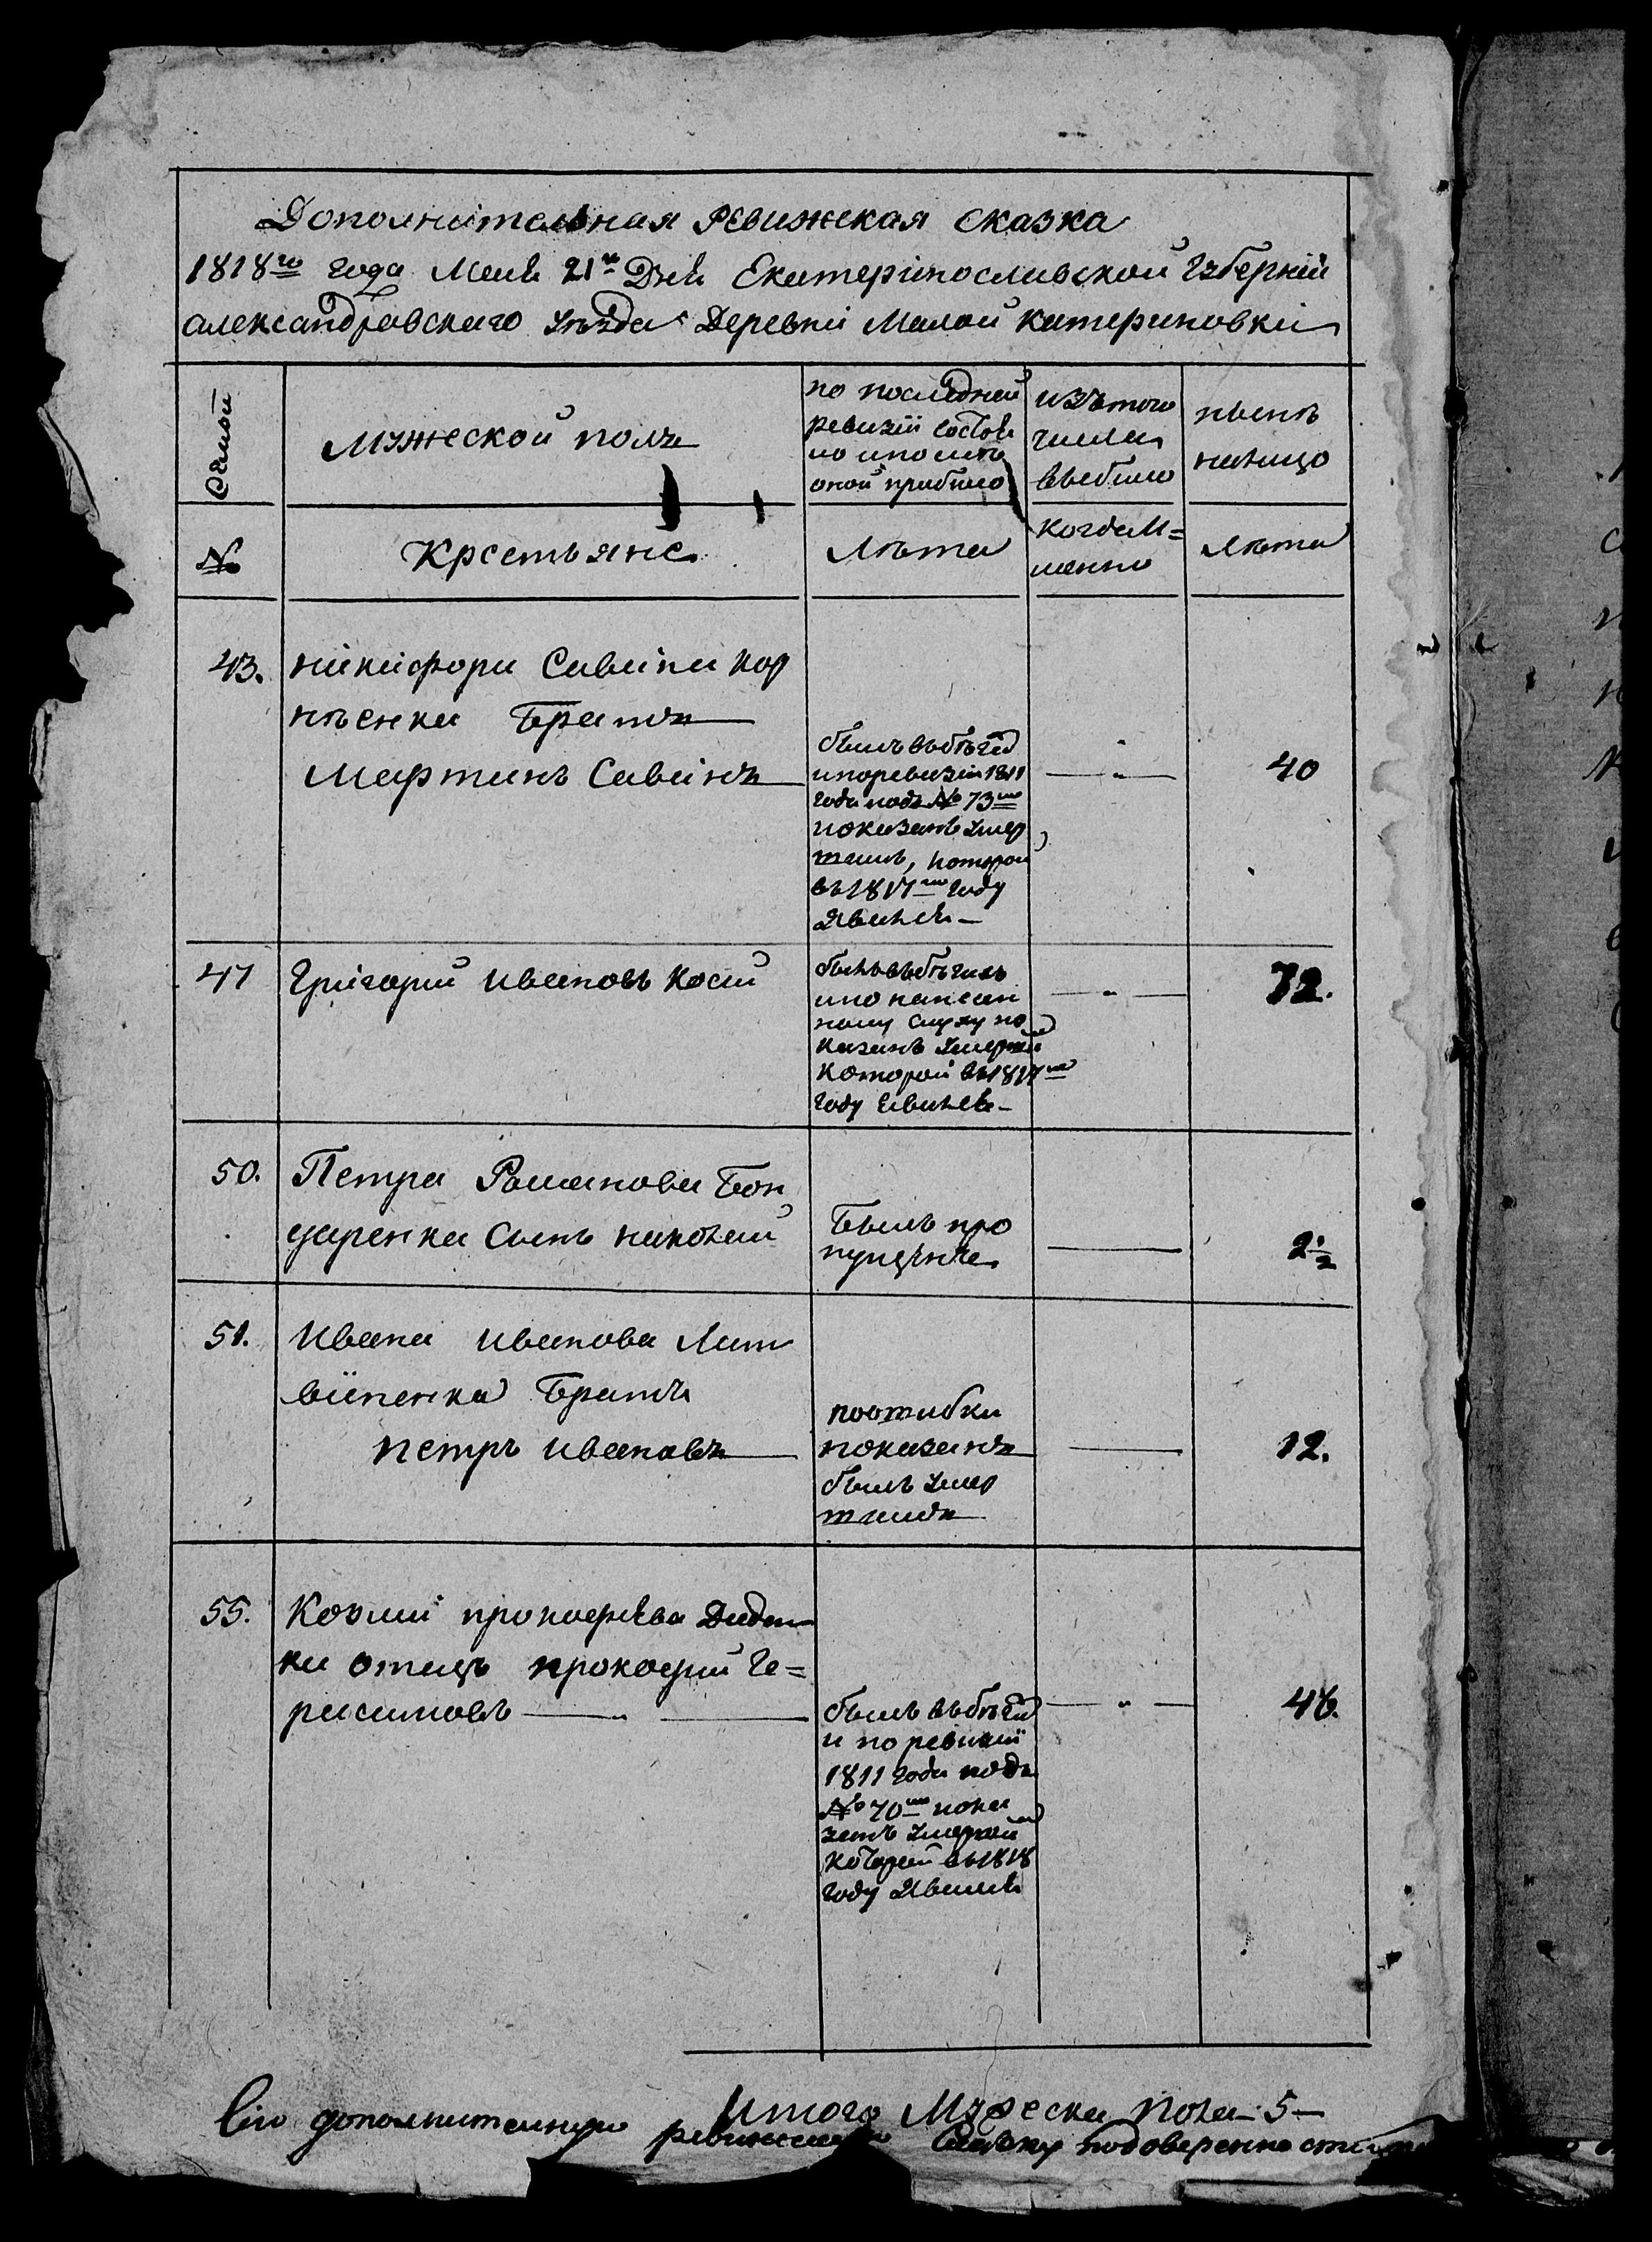 Дополнительная Ревижская Сказка
1818го года Маія 21го Дня Екатеринославской Губерніи
Александровского Уезда Деревни Малой Катериновки
Семьи
Мужеской полъ
по последней
ревизіи состоя
ло и после
оной прибыло
изъ того
числа
выбыло
ныне
налицо
№
Крестьяне
Лета
когда и=
менно
Лета
43.
Никифора Савина Кор
неенка Братъ
Мартинъ Савинъ
былъ въ бегах
и по ревизіи 1811
года подъ № 73мъ
показанъ умер
шимъ, которой
въ 1817мъ году
явился —
— " —
40
47
Григорий Ивановъ Косий
былъ въ бегахъ
слуху по
казанъ умершим
которой въ 1817мъ
году явился —
— " —
72.
50.
Петра Романова Бон
даренка Сынъ Николай
Былъ про
пущенъ
—
2 1/2
51.
Ивана Иванова Лит
виненка Братъ
Петръ Ивановъ
по ошибки
показанъ
былъ умер
шимъ
—
12.
55.
Козми Прокофьева Диден
ка отецъ Прокофий Ге=
расимовъ — " —
былъ въ бегах
и по ревизіи
1811 года подъ
№ 70мъ пока
занъ умершим
который въ 1818
году явился
— " —
46.
Итого Мужеска пола - 5 -
Сію дополнительную ревижскую Сказку по доверенности